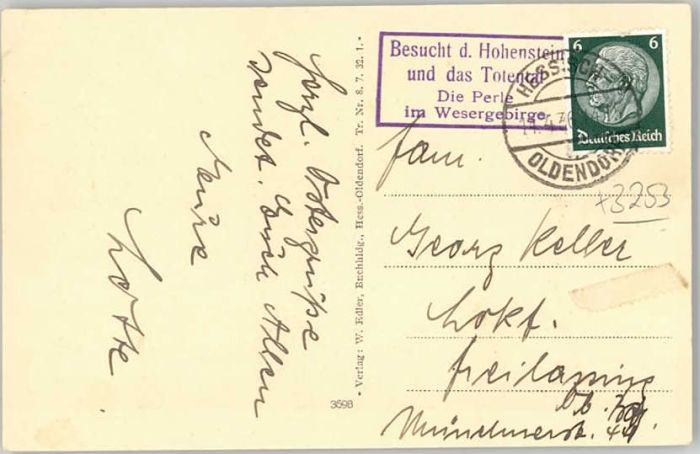 Herzl. Ostergrüße
sendet. Euch Allen
Eure
Lotte
- Verlag: W. Edler, Buchhldg., Hess.-Oldendorf. Tr. Nr. 8. 7. 32. 1. -
3598
Besucht d. Hohenstein
und das Totental
Die Perle
im Wesergebirge
HESSISCH-
OLDENDORF
6 6
Deutsches Reich
+3253
Fam.
Georg Keller
Lokf.
Freilassing
Münchnerstr. 44